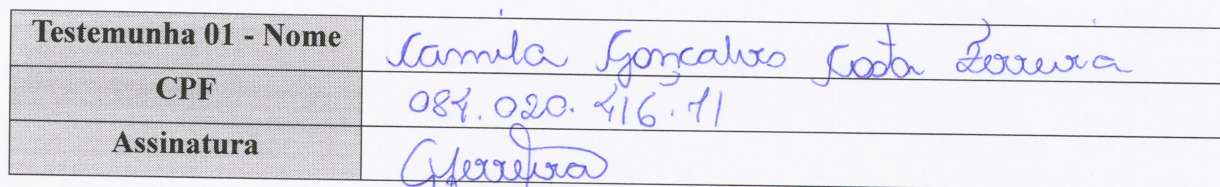 Testemunha 01 - Nome Camila Gonçalves Costa Ferreira
CPF 084.020.416.71
Assinatura CFerreira